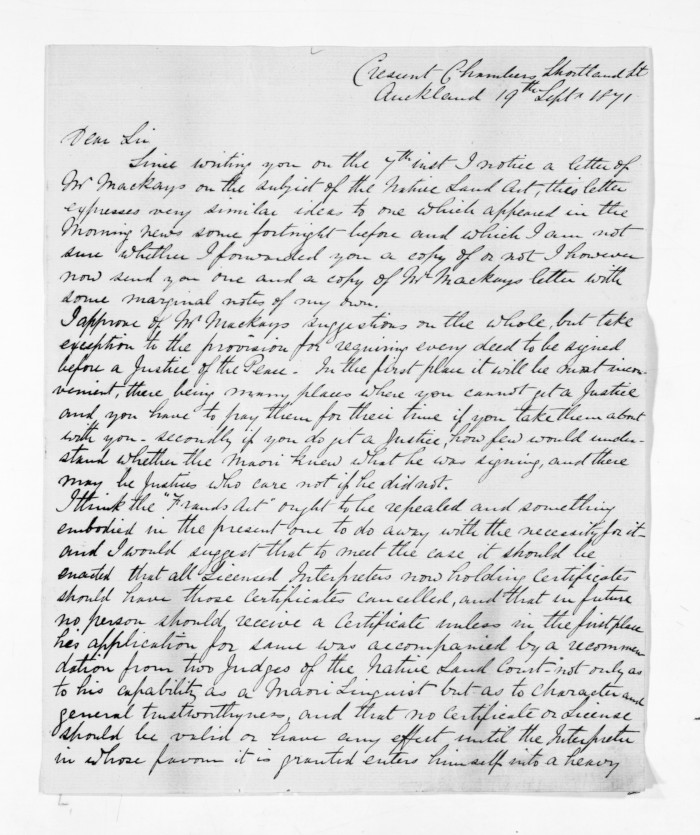 Crescent Chambers Shortland St
Auckland 19th Sept 1871
Dear Sir
Since writing you on the 7th inst I notice a letter of
Mr Mackays on the subject of the Native Land Act, this letter
expresses very similar ideas to one which appeared in the
Morning news some fortnight before and which I am not
sure whether I forwarded you a copy of or not I however
now send you one and a copy of Mr Mackays letter with
some marginal notes of my own.
I approve of Mr Mackays suggestions on the whole, but take
exception to the provision for requiring every deed to be signed
before a Justice of the Peace. In the first place it will be most incon-
venient, there being many places where you cannot get a Justice
and you have to pay them for their time if you take them about
with you - secondly if you do get a Justice, how few would under-
stand whether the Maori knew what he was signing, and there
may be Justices who care not if he did not.
I think the "Frauds Act" ought to be repealed and something
embodied in the present one to do away with the necessity for it -
and I would suggest that to meet the case it should be
enacted that all Licensed Interpreters now holding Certificates
should have those Certificates cancelled, and that in future
no person should receive a Certificate unless in the first place
his application for same was accompanied by a recommen
dation from two Judges of the Native Land Court not only as
to his capability as a Maori Linguist but as to Character and
general trustworthyness, and that no Certificate or License
should be valid or have any effect until the Interpreter
in whose favour it is granted enters himself into a heavy